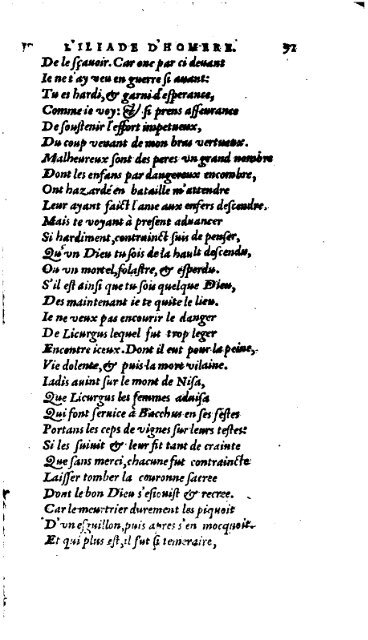 L'ILIADE D'HOMERE. 32
De le sçauoir. Car onc par ci deuant
Ie ne t'ay veu en guerre si auant:
Tu es hardi, & garni d'esperance,
Comme ie voy: & si prens asseurance
De soustenir l'effort impetueux,
Du coup venant de mon bras vertueux.
Malheureux sont des peres vn grand nombre
Dont les enfans par dangereux encombre,
Ont hazardé en bataille m'attendre
Leur ayant faict l'ame aux enfers descendre.
Mais te voyant à present aduancer
Si hardiment, contrainct suis de penser,
Qu'vn Dieu tu sois de la hault descendu,
Ou vn mortel, folastre, & esperdu.
S'il est ainsi que tu sois quelque Dieu,
Des maintenant ie te quite le lieu.
Ie ne veux pas encourir le danger
De Licurgus lequel fut trop leger
Encontre iceux. Dont il eut pour la peine,
Vie dolente, & puis la mort vilaine.
Iadis auint sur le mont de Nisa,
Que Licurgus les femmes aduisa
Qui font seruice à Bacchus en ses festes
Portans les ceps de vignes sur leurs testes:
Si les suiuit & leur fit tant de crainte
Que sans merci, chacune fut contraincte
Laisser tomber la couronne sacree
Dont le bon Dieu s'esiouist & recree.
Car le meurtrier durement les piquoit
D'vn esguillon, puis apres s'en mocquoit.
Et qui plus est, il fut si temeraire,